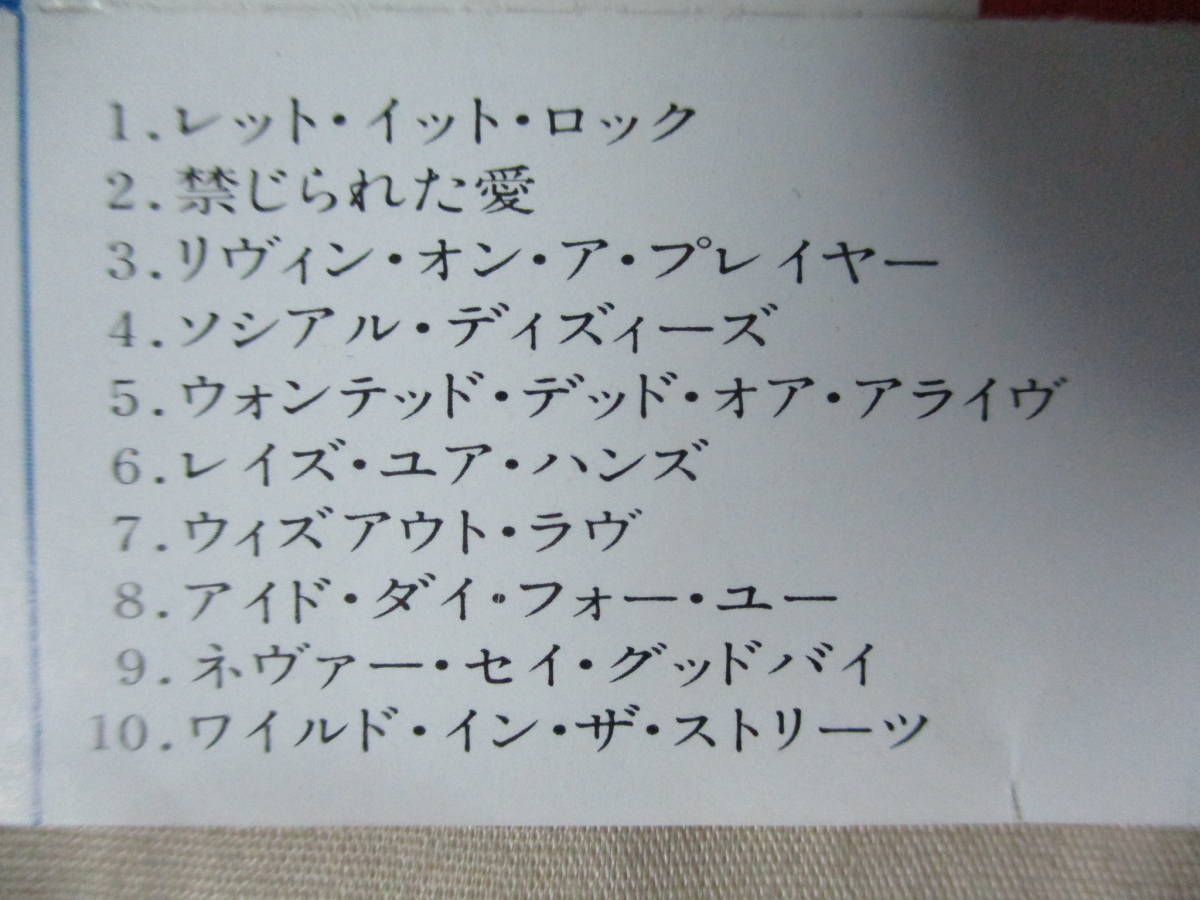 1.レット・イット・ロック
2.禁じられた愛
3.リヴィン・オン・ア・プレイヤー
4.ソシアル・ディズィーズ
5.ウォンテッド・デッド・オア・アライヴ
6.レイズ・ユア・ハンズ
7.ウィズアウト・ラヴ
8.アイド・ダイ・フォー・ユー
9.ネヴァー・セイ・グッドバイ
10.ワイルド・イン・ザ・ストリーツ